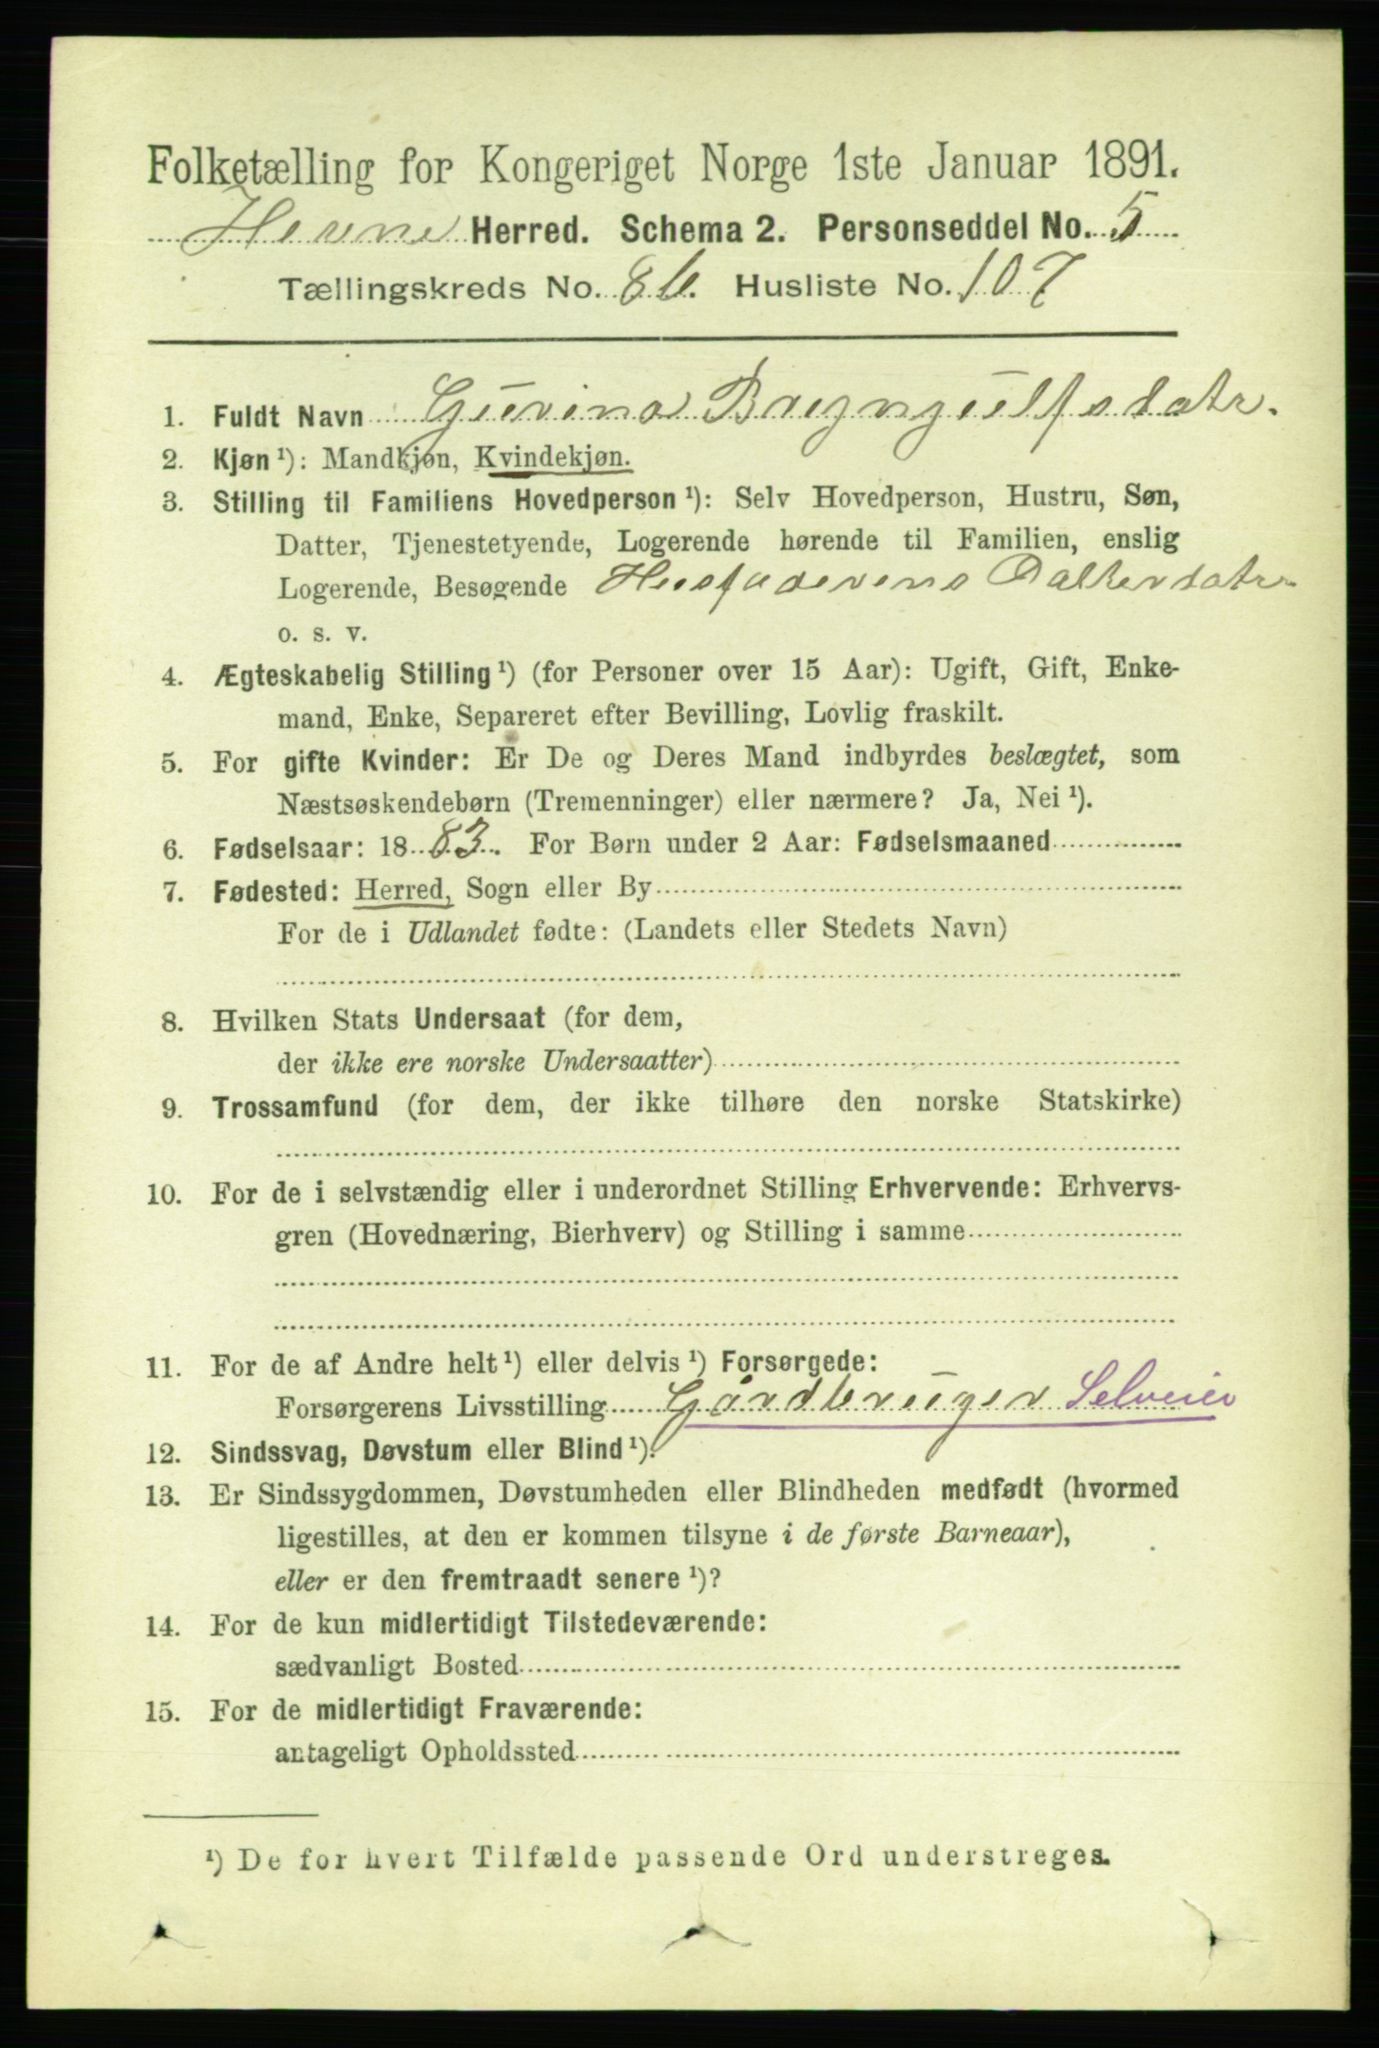 Folketælling for Kongeriget Norge 1ste Januar 1891.
Hevne Herred. Schema 2. Personseddel No. 5
Tællingskreds No. 8b. Husliste No. 107
1. Fuldt Navn Gurina Brynjulfsdatr.
2. Kjøn ¹): Mandkjøn, Kvindekjøn.
3. Stilling til Familiens Hovedperson ¹): Selv Hovedperson, Hustru, Søn,
Datter, Tjenestetyende, Logerende hørende til Familien, enslig
Logerende, Besøgende Husfaderens Datterdatr
o. s. v.
4. Ægteskabelig Stilling ¹) (for Personer over 15 Aar): Ugift, Gift, Enke-
mand, Enke, Separeret efter Bevilling, Lovlig fraskilt.
5. For gifte Kvinder: Er De og Deres Mand indbyrdes beslægtet, som
Næstsøskendebørn (Tremenninger) eller nærmere? Ja, Nei ¹).
6. Fødselsaar: 1883. For Børn under 2 Aar: Fødselsmaaned
7. Fødested: Herred, Sogn eller By
For de i Udlandet fødte: (Landets eller Stedets Navn)
8. Hvilken Stats Undersaat (for dem,
der ikke ere norske Undersaatter)
9. Trossamfund (for dem, der ikke tilhøre den norske Statskirke)
10. For de i selvstændig eller i underordnet Stilling Erhvervende: Erhvervs-
gren (Hovednæring, Bierhverv) og Stilling i samme
11. For de af Andre helt ¹) eller delvis ¹) Forsørgede:
Forsørgerens Livsstilling Gårdbruger Selveier
12. Sindssvag, Døvstum eller Blind ¹).
13. Er Sindssygdommen, Døvstumheden eller Blindheden medfødt (hvormed
ligestilles, at den er kommen tilsyne i de første Barneaar),
eller er den fremtraadt senere ¹)?
14. For de kun midlertidigt Tilstedeværende:
sædvanligt Bosted
15. For de midlertidigt Fraværende:
antageligt Opholdssted
¹) De for hvert Tilfælde passende Ord understreges.